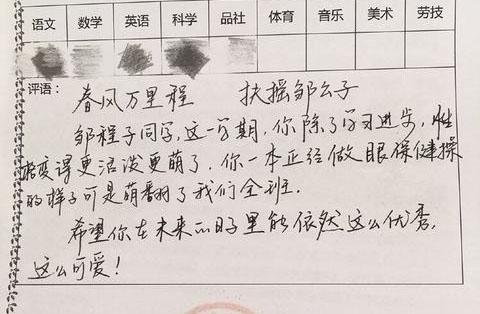 语文 数学 英语 科学 品社 体育 音乐 美术 劳技
评语：
春风万里程 扶摇邹公子
邹程子同学，这一学期，你除了学习进步，性
格变得更活泼更萌了，你一本正经做眼保健操
的样子可是萌翻了我们全班。
希望你在未来的日子里能依然这么优秀，
这么可爱！